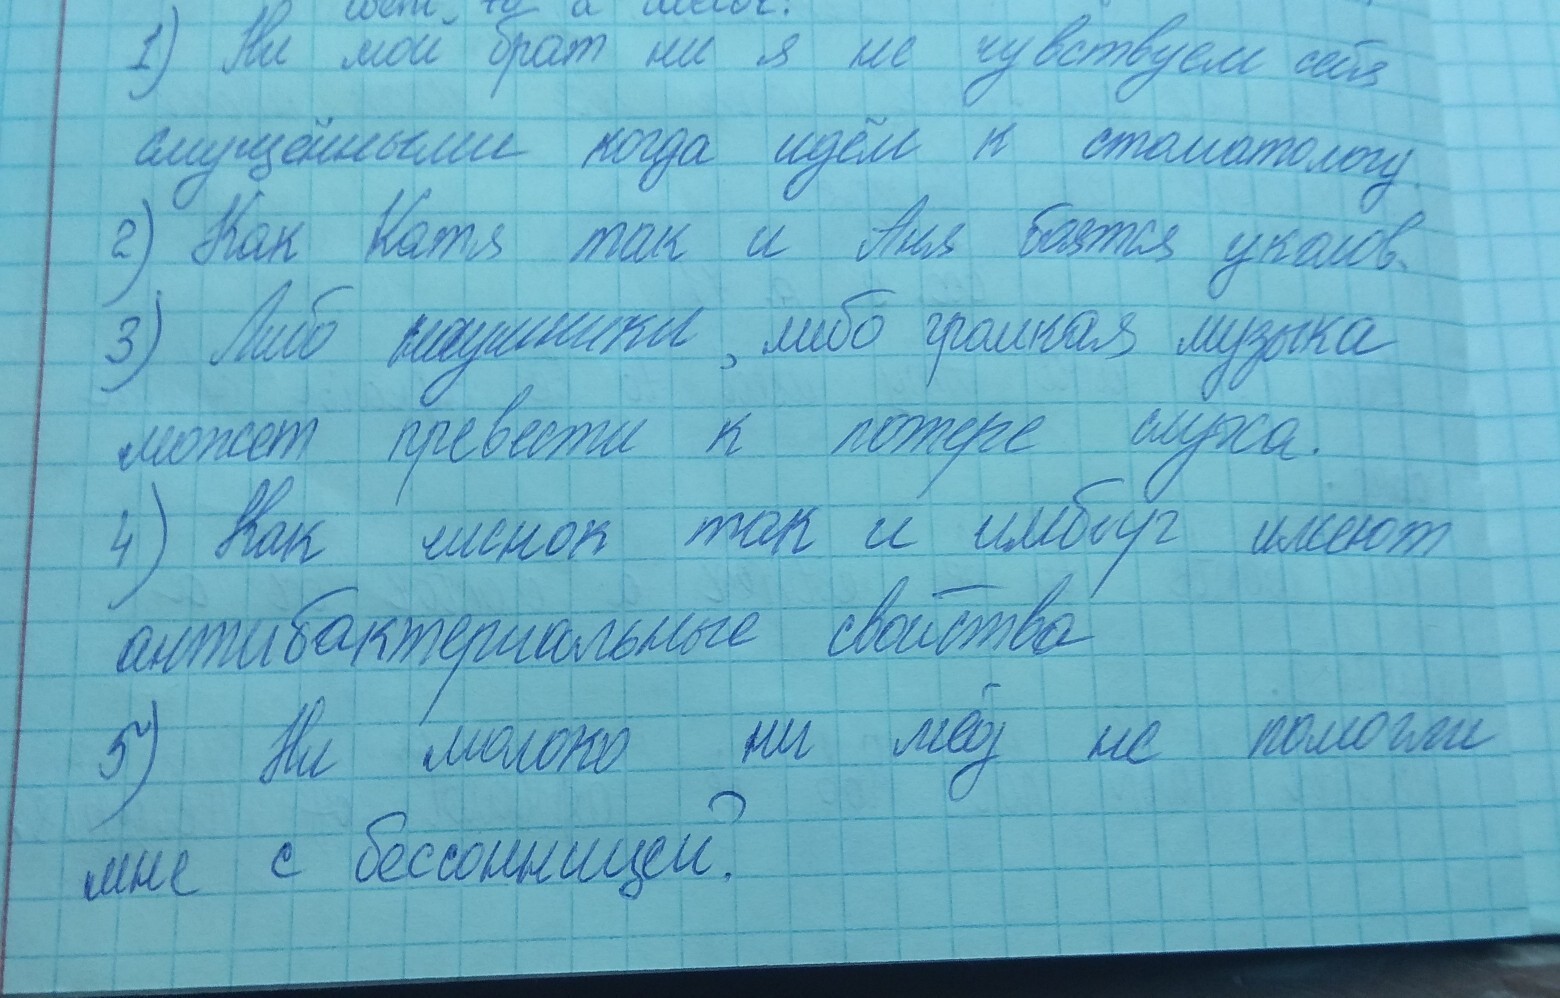 1) Ни мой брат ни я не чувствуем себя
смущёнными когда идём к стоматологу.
2) Как Катя так и Аня боятся уколов.
3) Либо наушники, либо громкая музыка
может превести к потере слуха.
4) Как чиснок так и имбирг имеют
антибактериальные свойства
5) Ни молоко ни мёд не помогли
мне с бессонницей?